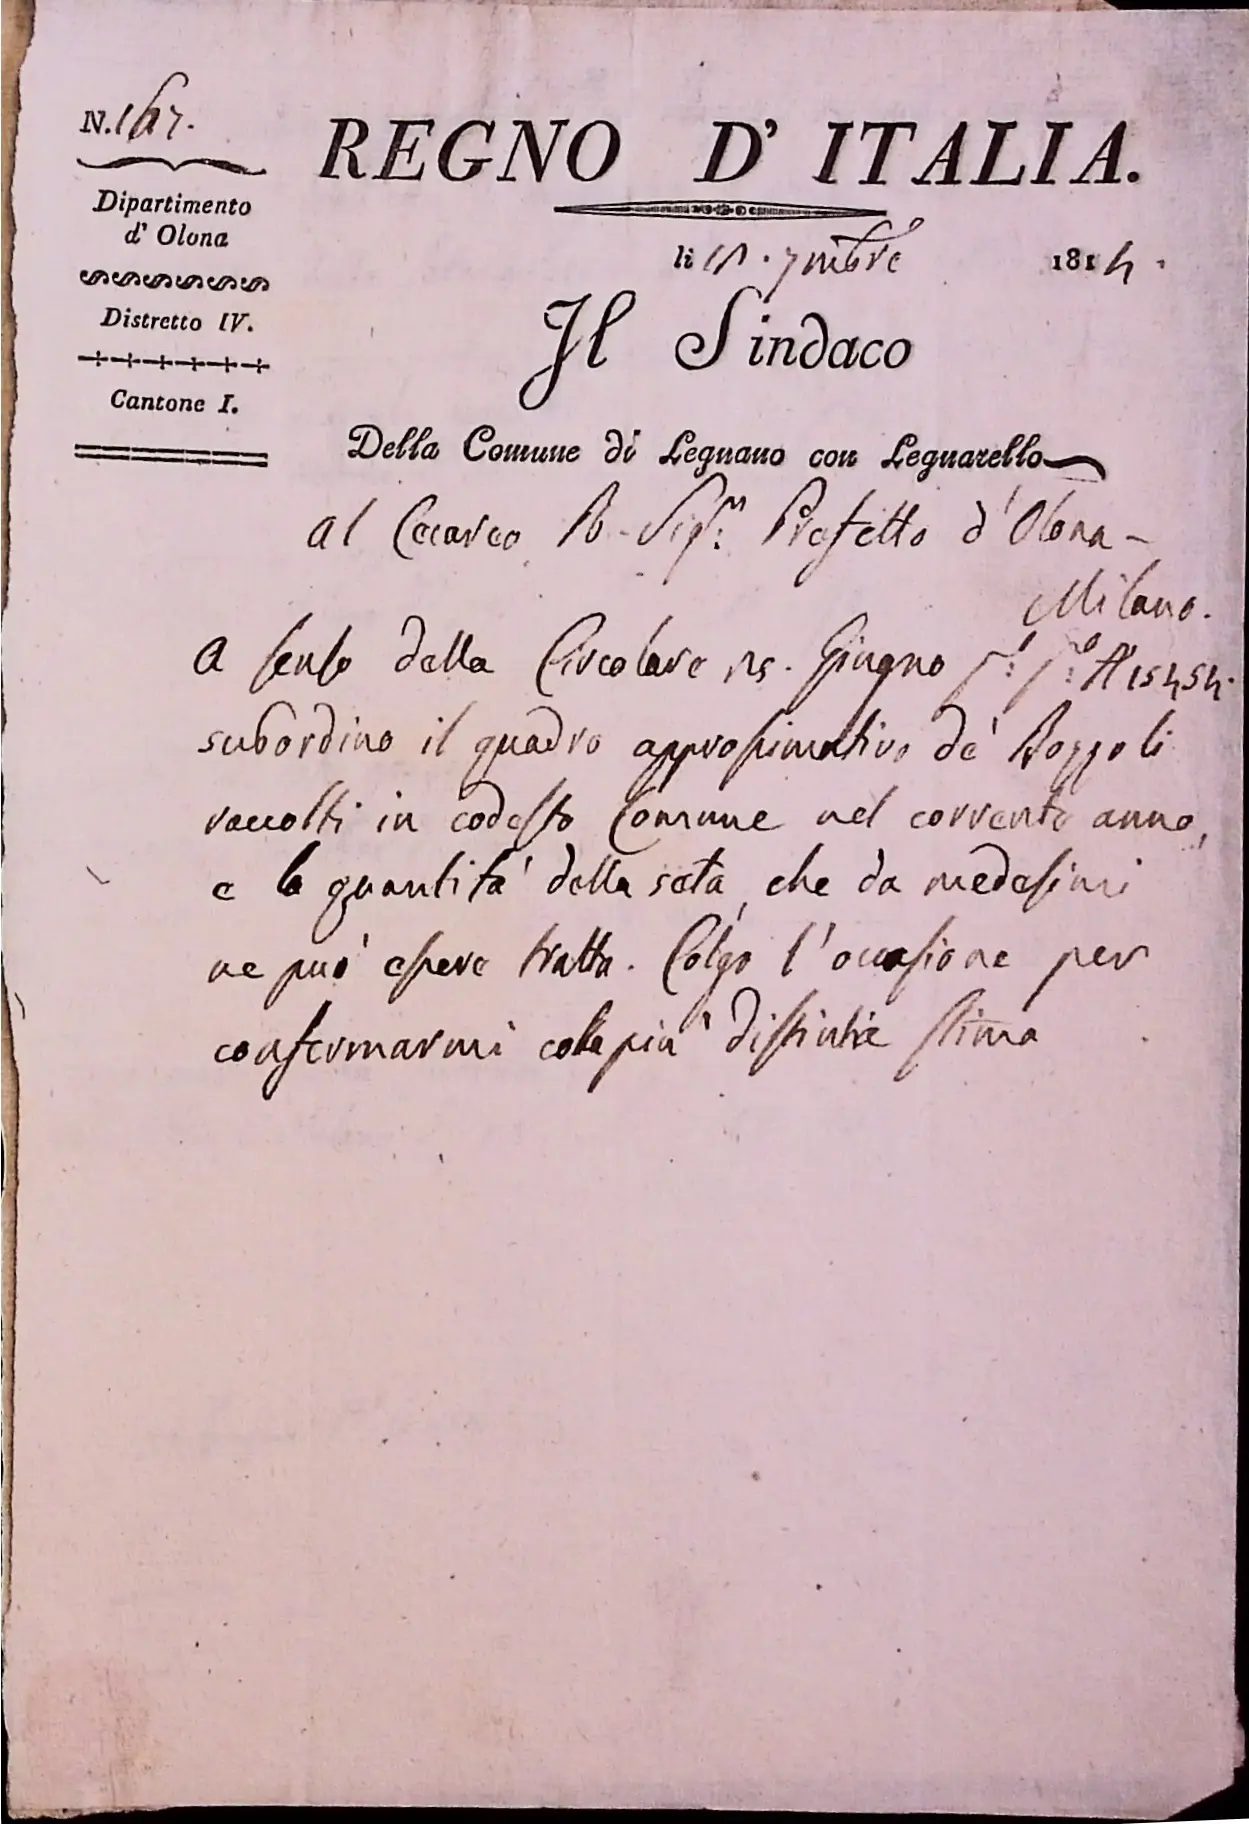 N. 167.
REGNO D' ITALIA.
Dipartimento
d' Olona
li 7mbre 1814.
Distretto IV.
Il Sindaco
Cantone I.
Della Comune di Legnano con Legnarello
Al Sigr. Prefetto d'Olona -
Milano.
A senso della Circolare Giugno N° 15454.
subordino il quadro approssimativo de' Bozzoli
raccolti in codesto Comune nel corrente anno,
e la quantita' della seta, che da medesimi
ne può essere tratta. Colgo l'occasione per
confermarmi colla più distinta stima